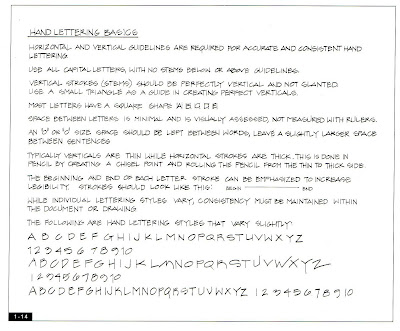 HAND LETTERING BASICS
HORIZONTAL AND VERTICAL GUIDELINES ARE REQUIRED FOR ACCURATE AND CONSISTENT HAND
LETTERING.
USE ALL CAPITAL LETTERS, WITH NO STEMS BELOW OR ABOVE GUIDELINES.
VERTICAL STROKES (STEMS) SHOULD BE PERFECTLY VERTICAL AND NOT SLANTED.
USE A SMALL TRIANGLE AS A GUIDE IN CREATING PERFECT VERTICALS.
MOST LETTERS HAVE A SQUARE SHAPE
SPACE BETWEEN LETTERS IS MINIMAL AND IS VISUALLY ASSESSED, NOT MEASURED WITH RULERS.
AN "O" OR "D" SIZE SPACE SHOULD BE LEFT BETWEEN WORDS, LEAVE A SLIGHTLY LARGER SPACE
BETWEEN SENTENCES
TYPICALLY VERTICALS ARE THIN WHILE HORIZONTAL STROKES ARE THICK. THIS IS DONE IN
PENCIL BY CREATING A CHISEL POINT AND ROLLING THE PENCIL FROM THE THIN TO THICK SIDE.
THE BEGINNING AND END OF EACH LETTER STROKE CAN BE EMPHASIZED TO INCREASE
LEGIBILITY. STROKES SHOULD LOOK LIKE THIS: BEGIN END
WHILE INDIVIDUAL LETTERING STYLES VARY, CONSISTENCY MUST BE MAINTAINED WITHIN
THE DOCUMENT OR DRAWING
THE FOLLOWING ARE HAND LETTERING STYLES THAT VARY SLIGHTLY:
A B C D E F G H I J K L M N O P Q R S T U V W X Y Z
1 2 3 4 5 6 7 8 9 10
A B C D E F G H I J K L M N O P Q R S T U V W X Y Z
1 2 3 4 5 6 7 8 9 10
A B C D E F G H I J K L M N O P Q R S T U V W X Y Z 1 2 3 4 5 6 7 8 9 10
1-14